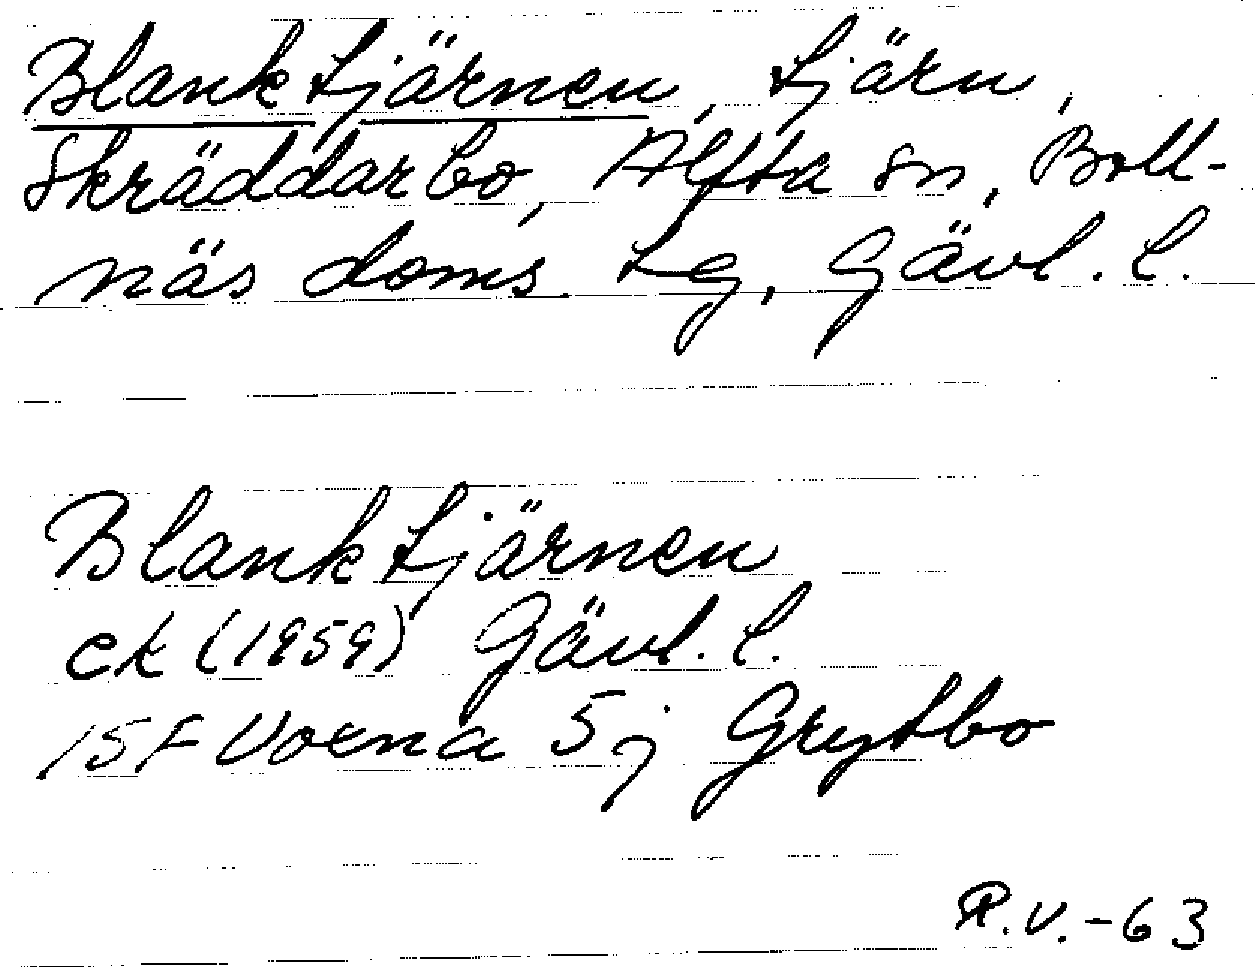 Blanktjärnen, tjärn,
Skräddarbo, Alfta sn, Boll-
näs doms. tg, Gävl. l.
Blanktjärnen
ek (1959) Gävl. l.
15F Voxna 5j Grytbo
R.V.-63